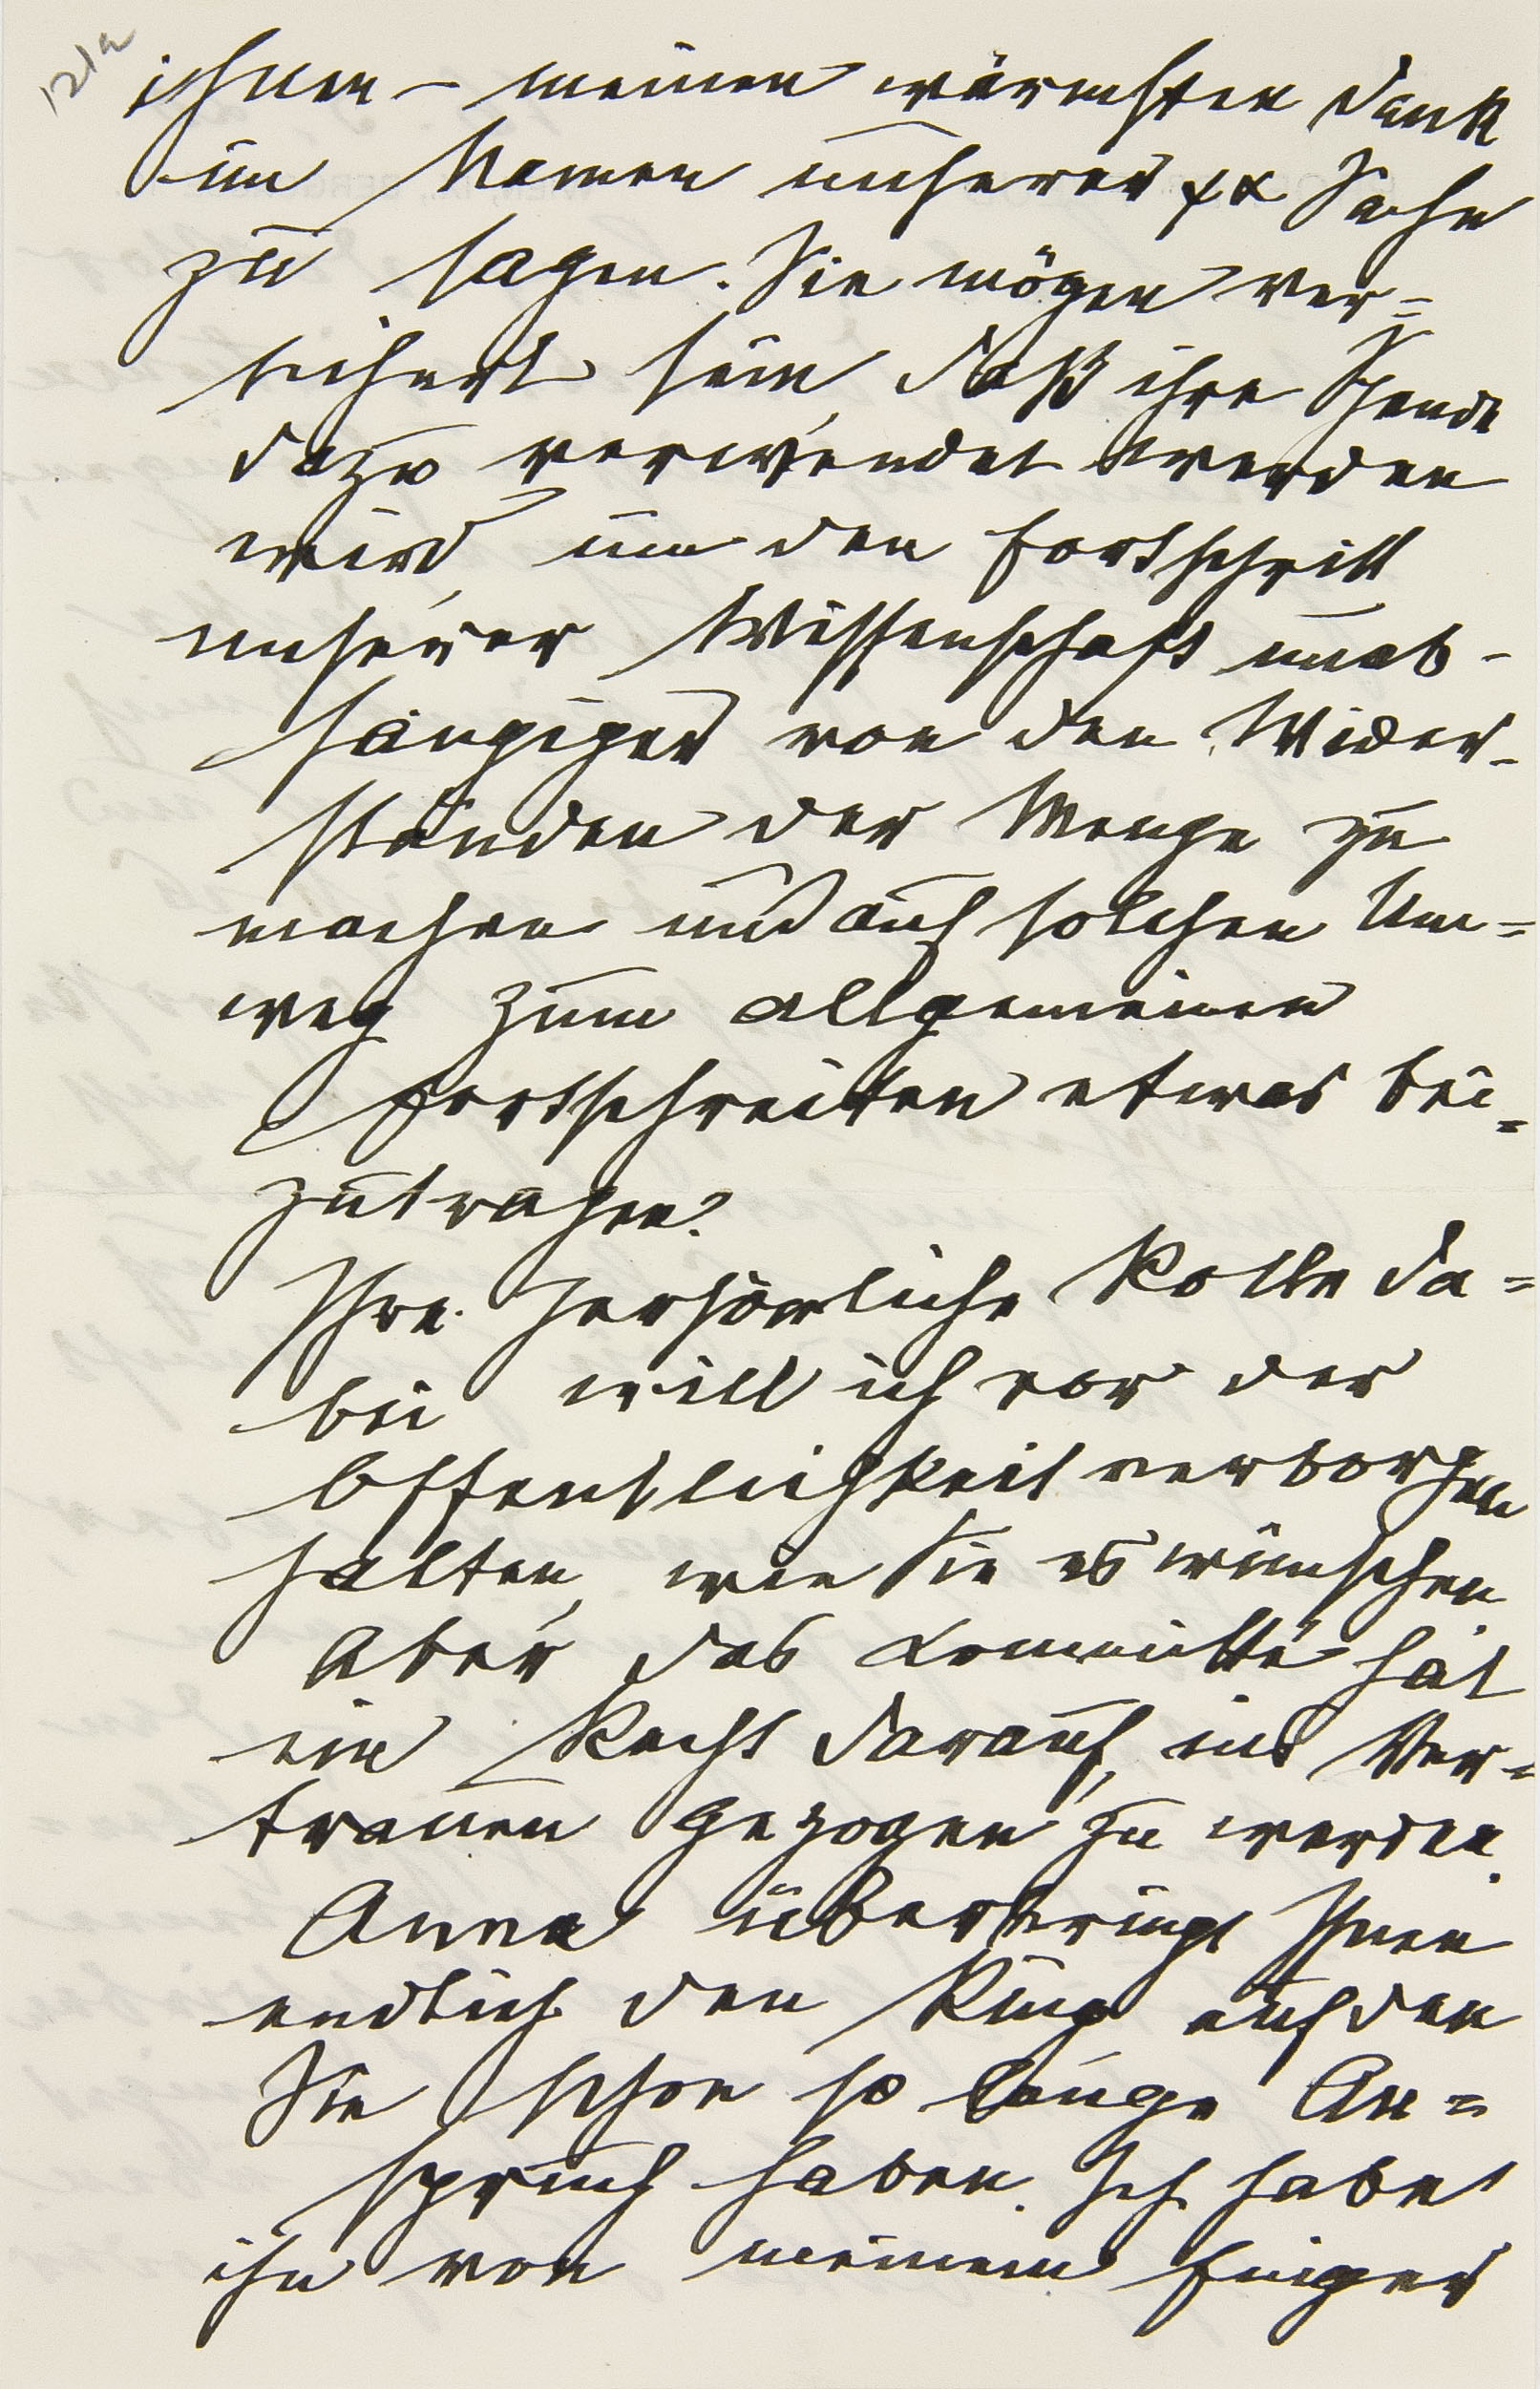 121a
ihnen – meinen wärmsten Dank
im Namen unserer ψα Sache
zu sagen. Sie mögen ver=
sichert sein, daß ihre Spende
dazu verwendet werden
wird, um den Fortschritt
unserer Wissenschaft unab-
hängiger von den Wider-
ständen der Menge zu
machen und auf solchen Um=
weg zum allgemeinen
Fortschreiten etwas bei=
zutragen.
Ihre persönliche Rolle da=
bei will ich vor der
Öffentlichkeit verborgen
halten, wie Sie es wünschen
Aber das Committé hat
ein Recht darauf, ins Ver=
trauen gezogen zu werden.
Anna überbringt Ihnen
endlich den Ring auf den
Sie schon so lange An=
spruch haben. Ich habe
ihn von meinem Finger